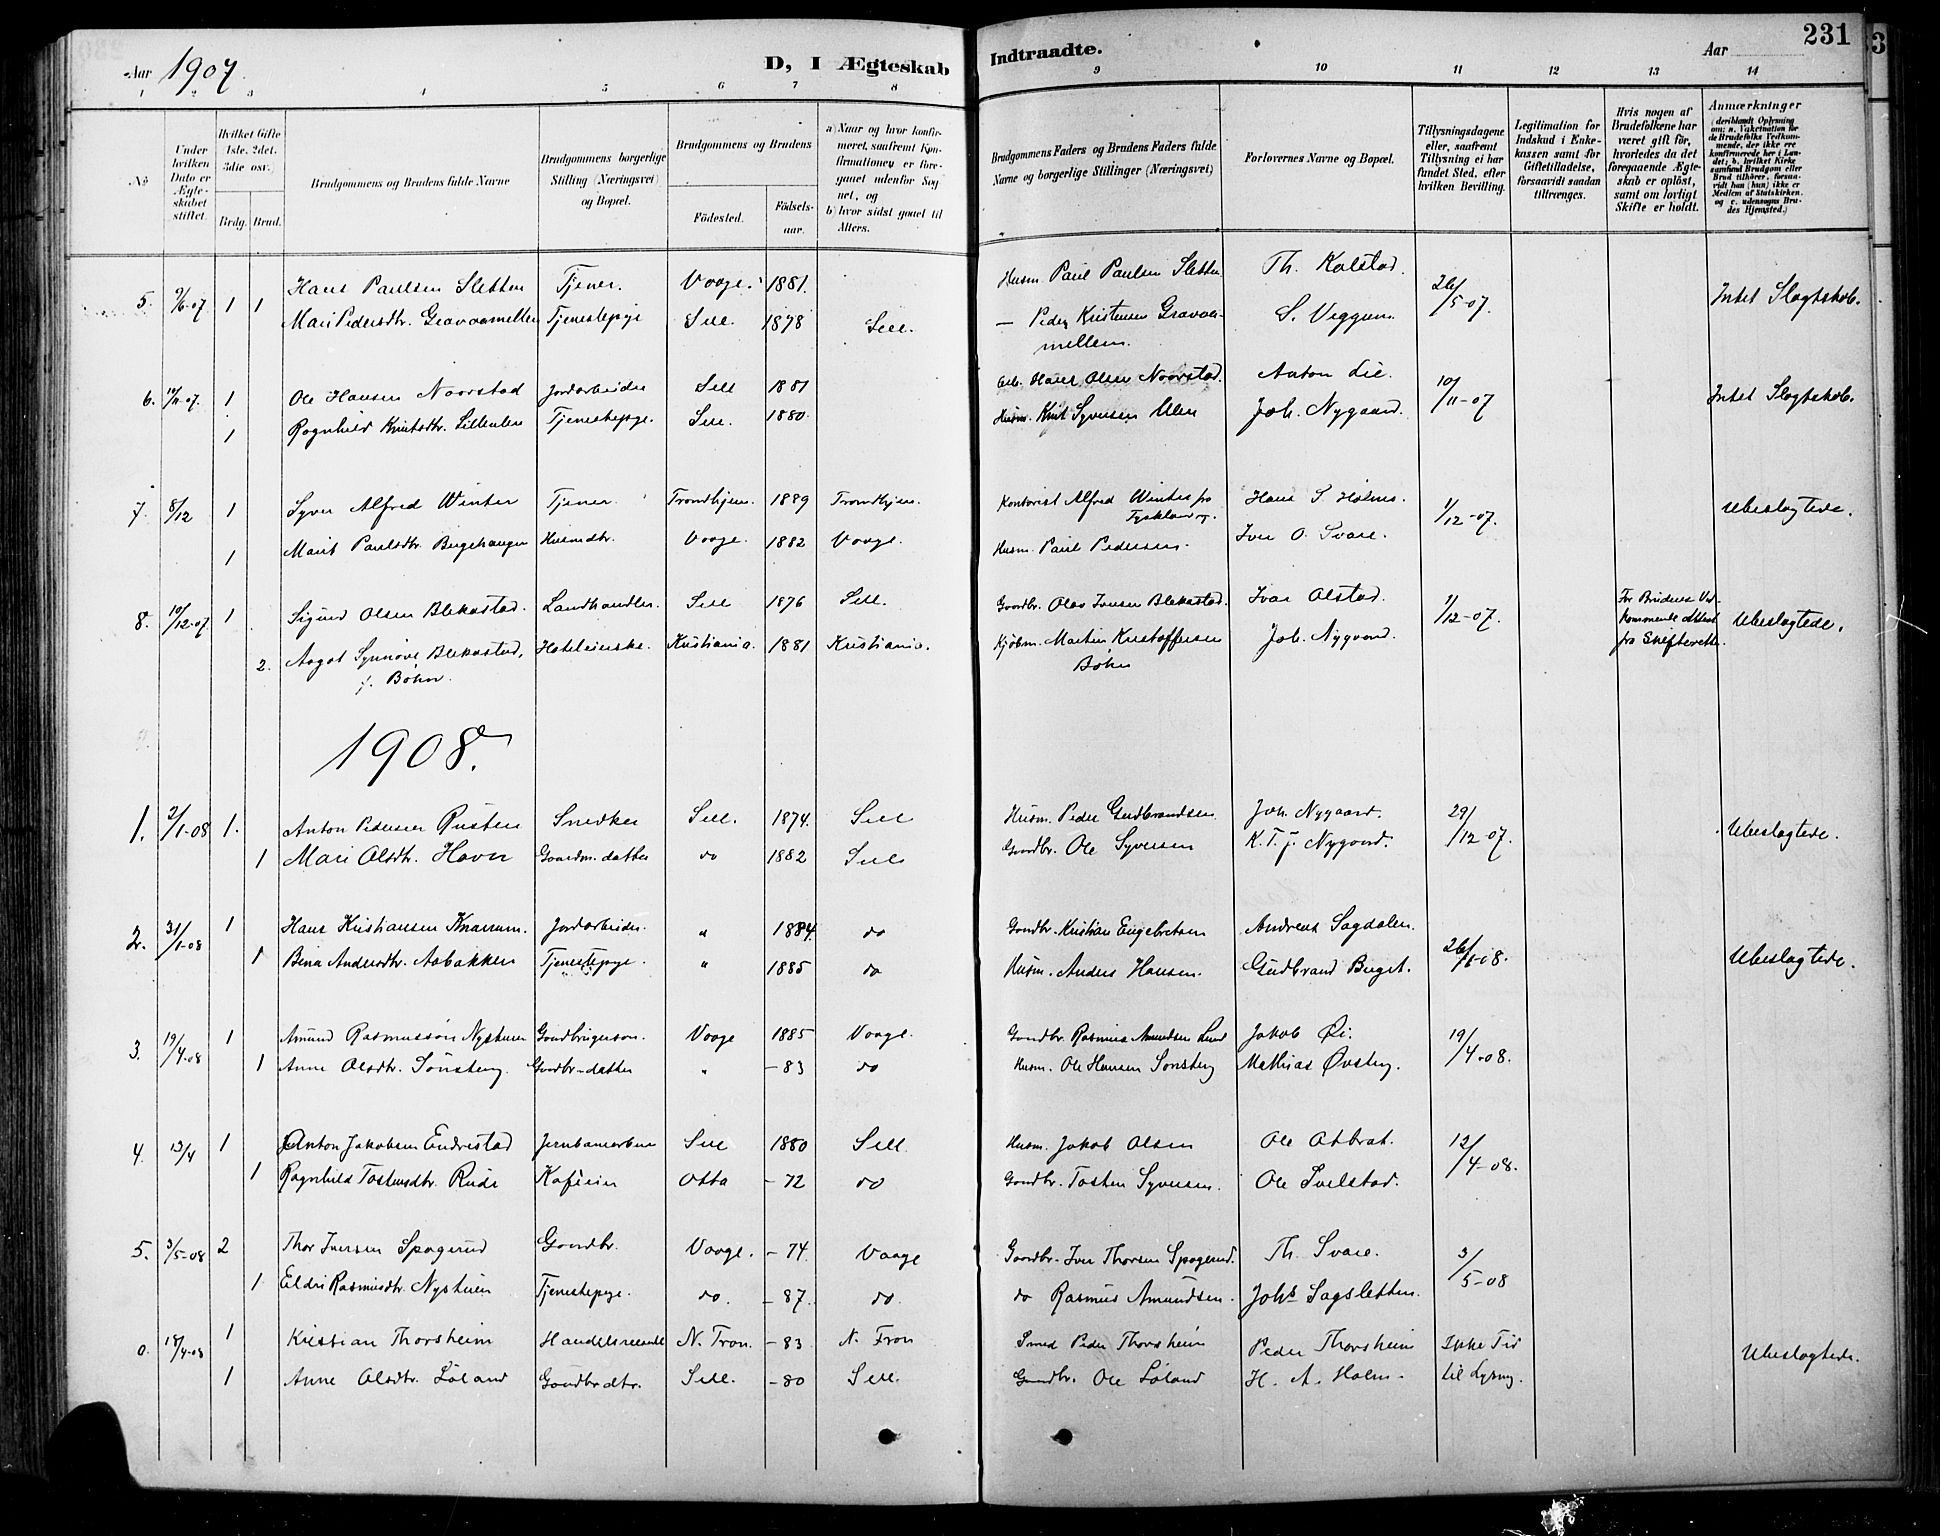 Aar 1907.
D, I Ægteskab
Indtraadte.
Aar
231
1 2 3 4 5 6 7 8
9 10 11 12 13 14
No
Under hvilken Dato er Ægteskabet stiftet.
Hvilket Gifte 1ste. 2det. 3die osv.
Brdg. Brud.
Brudgommens og Brudens fulde Navne
Brudgommens borgerlige Stilling (Næringsvei) og Bopæl.
Brudgommens og Brudens
Fødested.
Fødselsaar.
a) Naar og hvor konfirmeret, saafremt Konfirmationen er foregaaet udenfor Sognet, og
b) hvor sidst gaaet til Alters.
Brudgommens Faders og Brudens Faders fulde Navne og borgerlige Stillinger (Næringsvei)
Forlovernes Navne og Bopæl.
Tillysningsdagene eller, saafremt Tillysning ei har fundet Sted, efter hvilken Bevilling.
Legitimation for Indskud i Enkekassen samt for Giftetilladelse, forsaavidt saadan tiltrænges.
Hvis nogen af Brudefolkene har været gift før, hvorledes da det foregaaende Ægteskab er opløst, samt om lovligt Skifte er holdt.
Anmærkninger (deriblandt Oplysning om: a. Vakcination for de Brudefolks Vedkommende, der ikke ere konfirmerede her i Landet; b. hvilket Kirkesamfund Brudgom eller Brud tilhører, forsaavidt han (hun) ikke er Medlem af Statskirken, og c. udensogns Brudes Hjemsted.)
5. 9/6-07 1 1 Hans Paulsen Sletten Tjener. Vaage. 1881. Husm. Paul Paulsen Sletten Th. Kolstad. 26/5-07. Intet Slagtskab.
Mari Pedersdtr. Gravaamellem Tjenestepige Sell. 1878 Sell. — Peder Kristensen Gravaamellem. S. Veggum.
6. 10/11-07. 1 Ole Hansen Noorstad Jordarbeider Sell 1881 Arb. Hans Olsen Noorstad. Anton Lie. 10/11-07 Intet Slagtskab.
1 Ragnhild Knutsdtr. Lilleulen Tjenestepige. Sell. 1880. Husm. Knut Syversen Ulen Joh. Nygaard.
7. 8/12 1 Syver Alfred Winter Tjener. Trondhjem. 1889 Trondhjem. Kontorist Alfred Winter fra Tyskland. Hans S. Holmes. 1/12-07. Ubeslagtede.
1 Marit Paulsdtr. Bugehaugen Husmdtr. Vaage. 1882 Vaage. Husm. Paul Pedersen. Iver O. Svare.
8. 10/12-07 1 Sigurd Olsen Blekastad. Landhandler. Sell 1876 Sell. Gaardbr. Olav Iversen Blekastad. Ivar Olstad. 1/12-07. For Brudens Vedkommende attest fra Skifteretten. Ubeslagtede.
2. Aagot Synnøve Blekastad, f. Bohn. Hoteleierske. Kristiania. 1881 Kristiania. Kjøbm. Martin Kristoffersen Bohn Joh. Nygaard.
1908.
1. 2/1-08 1. Anton Pedersen Rusten Snedker Sell. 1874. Sell Husm. Peder Gudbrandsen Joh. Nygaard. 29/12-07. Ubeslagtede.
1 Mari Olsdtr. Havn Gaardm. datter do 1882 Sell Gaardbr. Ole Syversen K. T. J. Nygaard.
2. 31/1-08 1 Hans Kristiansen Knarrum. Jordarbeider. " 1884. do Gaardbr. Kristian Engebretsen Andreas Sagdalen. 26/1-08. Ubeslagtede.
1 Bina Andersdtr. Aabakken Tjenestepige. " 1885 do Husm. Anders Hansen. Gudbrand Buget.
3. 19/4-08 1 Amund Rasmussøn Nystuen Gaardbrugersøn. Vaage 1885 Vaage. Gaardbr. Rasmus Amundsen Lund Jakob Øi. 19/4-08.
1 Anne Olsdtr. Sønsteng. Gaardbr-datter " -83 do Husm. Ole Hansen Sønsteng Mathias Øvsteng.
4. 13/4 1 Anton Jakobsen Endrestad Jernbanearbeider Sell 1880 Sell. Husm. Jakob Olsen Ole Aabrat. 12/4-08.
1 Ragnhild Tostensdtr. Rude Kafeeier Otta -72 do Gaardbr. Tosten Syversen. Ole Selstad.
5. 3/5-08 2 Thor Iversen Spagerud Gaardbr. Vaage. -74. Vaage Gaardbr. Iver Thorsen Spagerud. Th. Svare. 3/5-08
1 Eldri Rasmusdtr. Nystuen Tjenestepige. do. -87. do. do Rasmus Amundsen. Johs Sagsletten.
18/4-08 1 Kristian Thorsheim Handelsreisende N. Fron. -83 N. Fron Smed Peder Thorsheim Peder Thorsheim Ikke Tid til Lysning. Ubeslagtede.
1 Anne Olsdtr. Løland Gaardbrdtr. Sell. -80 Sell. Gaardbr. Ole Løland H. A. Holm.